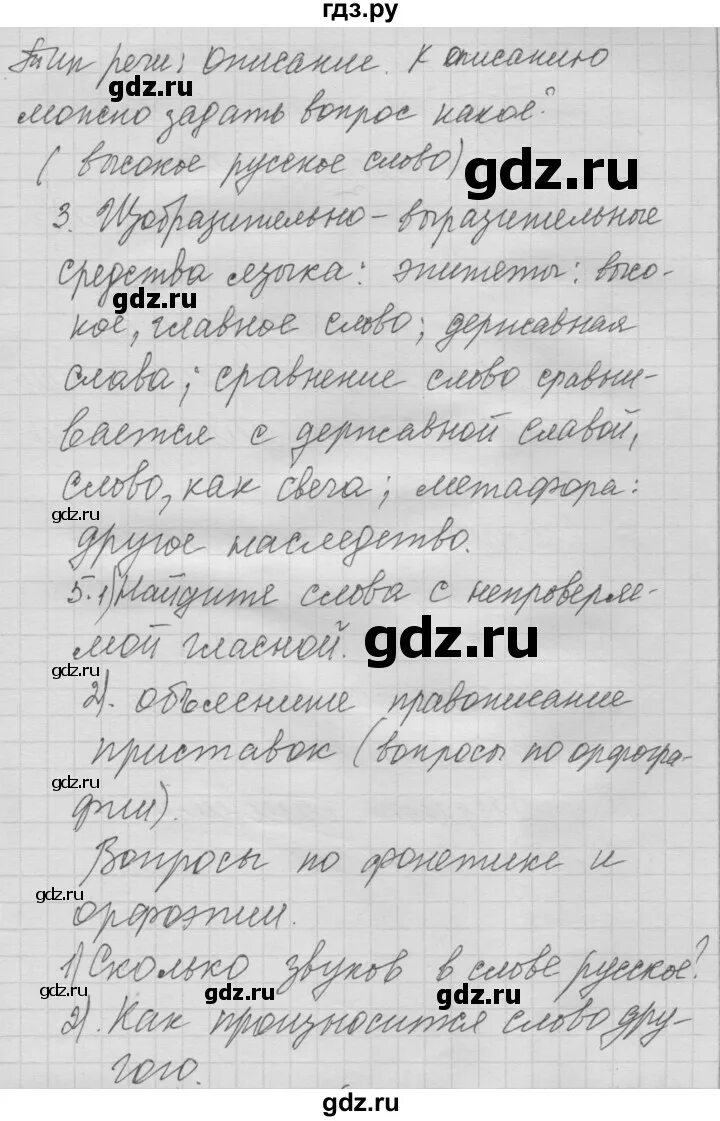 гдз.ру
Тип речи: Описание. К описанию
можно задать вопрос какое?
(высокое русское слово)
3. Изобразительно-выразительные
средства языка: эпитеты: высо-
кое, главное слово; державная
слава; сравнение слово сравни-
вается с державной славой,
слово, как свеча; метафора:
другое наследство.
5.1) Найдите слова с непроверяе-
мой гласной.
2). объяснение правописание
приставок (вопросы по орфогра-
фии).
Вопросы по фонетике и
орфоэпии.
1) Сколько звуков в слове русское?
2). Как произносится слово дру-
гого.
gdz.ru
gdz.ru
gdz.ru
gdz.ru
gdz.ru
gdz.ru
gdz.ru
gdz.ru
gdz.ru
gdz.ru
gdz.ru
gdz.ru